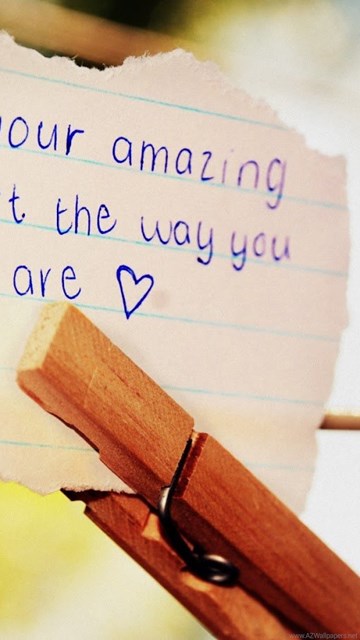 your amazing
t the way you
are ♡
www.AZWallpapers.net